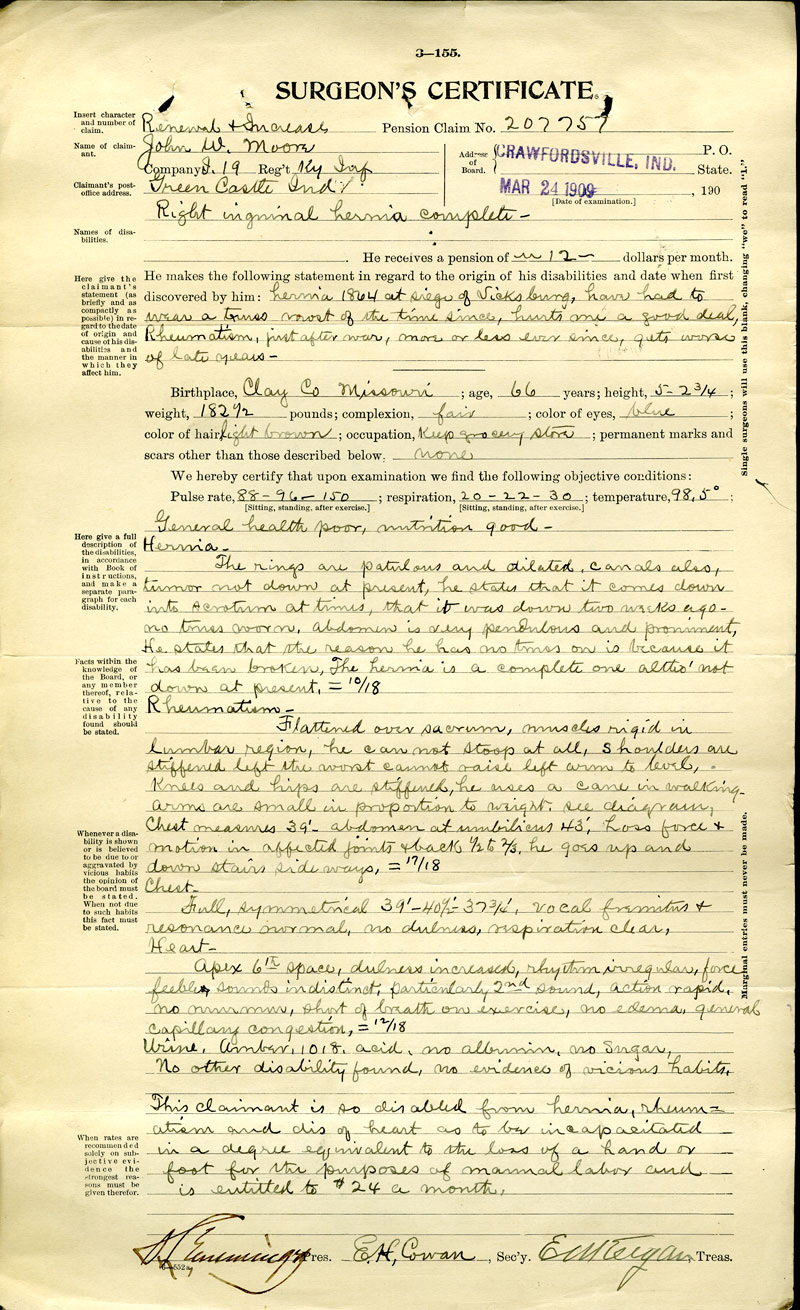 3—155.
SURGEON'S CERTIFICATE.
Insert character and number of claim.
Renewal & Increase Pension Claim No. 207757
Name of claimant.
John W. Moore
Address of Board. CRAWFORDSVILLE, IND. P. O. State.
Company I. 19 Reg't Ky Inf
Claimant's post-office address.
Green Castle Ind
MAR 24 1909 , 190
[Date of examination.]
Right inguinal hernia complete –
Names of disabilities.
He receives a pension of 12 – dollars per month.
Here give the claimant's statement (as briefly and as compactly as possible) in regard to the date of origin and cause of his disabilities and the manner in which they affect him.
He makes the following statement in regard to the origin of his disabilities and date when first
discovered by him: hernia 1864 at siege of Vicksburg, have had to
wear a truss most of the time since, hurts me a good deal,
Rheumatism, just after war, more or less ever since, gets worse
of late years –
Birthplace, Clay Co Missouri ; age, 66 years; height, 5-2 3/4 ;
weight, 182 1/2 pounds; complexion, fair ; color of eyes, blue ;
color of hair, light brown ; occupation, Keep grocery store ; permanent marks and
scars other than those described below. none
We hereby certify that upon examination we find the following objective conditions:
Pulse rate, 88-96-150 ; respiration, 20-22-30 ; temperature, 98.5° ;
[Sitting, standing, after exercise.] [Sitting, standing, after exercise.]
General health poor, nutrition good –
Here give a full description of the disabilities, in accordance with Book of instructions, and make a separate paragraph for each disability.
Hernia –
The rings are patulous and dilated, canals also,
tumor not down at present, he states that it comes down
into scrotum at times, that it was down two weeks ago –
no truss worn, abdomen is very pendulous and prominent,
He states that the reason he has no truss on is because it
has been broken, The hernia is a complete one altho' not
down at present, = 10/18
Facts within the knowledge of the Board, or any member thereof, relative to the cause of any disability found should be stated.
Rheumatism –
Flattened over sacrum, muscles rigid in
lumbar region, he can not stoop at all, Shoulders are
stiffened left the worst cannot raise left arm to level, –
Knees and hips are stiffened, he uses a cane in walking –
arms are small in proportion to weight. see diagram,
Chest measures 39'- abdomen at umbilicus 43', Loss force &
motion in affected joints & back 1/2 to 2/3, he goes up and
down stairs side ways, = 17/18
Whenever a disability is shown or is believed to be due to or aggravated by vicious habits the opinion of the board must be stated. When not due to such habits this fact must be stated.
Chest –
Full, symmetrical 39'-40 1/2'-37 3/4', vocal fremitus &
resonance normal, no dulness, respiration clear,
Heart –
Apex 6th space, dulness increased, rhythm irregular, force
feeble, sounds indistinct, particularly 2nd sound, action rapid,
no murmur, short of breath on exercise, no edema, general
capillary congestion, = 12/18
Urine, Amber, 1018. acid, no albumin, no Sugar,
No other disability found, no evidence of vicious habits.
This claimant is so disabled from hernia, rheum=
atism and dis of heart as to be incapacitated
in a degree equivalent to the loss of a hand or
foot for the purposes of manual labor and
is entitled to $24 a month,
When rates are recommended solely on subjective evidence the strongest reasons must be given therefor.
Pres. E. H. Cowan , Sec'y. Treas.
3—552a
Single surgeons will use this blank, changing "we" to read "I."
Marginal entries must never be made.